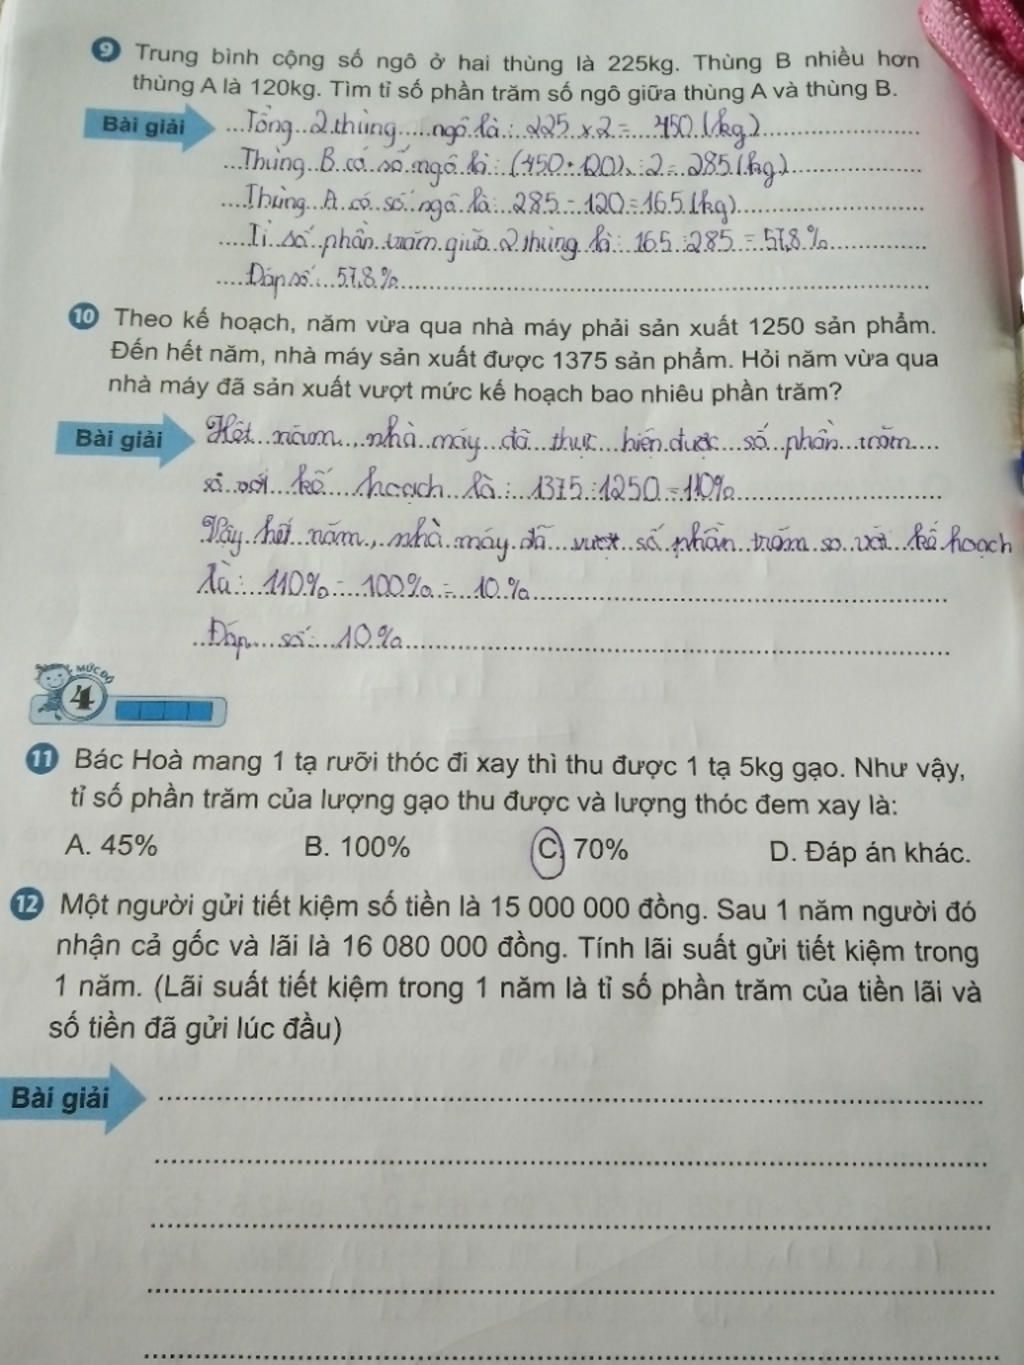 9 Trung bình cộng số ngô ở hai thùng là 225kg. Thùng B nhiều hơn
thùng A là 120kg. Tìm tỉ số phần trăm số ngô giữa thùng A và thùng B.
Bài giải Tổng 2 thùng ngô là: 225 x 2 = 450 (kg)
Thùng B có số ngô là: (450 + 120) : 2 = 285 (kg)
Thùng A có số ngô là: 285 - 120 = 165 (kg)
Tỉ số phần trăm giữa 2 thùng là: 165 : 285 = 57,8 %
Đáp số: 57,8 %
10 Theo kế hoạch, năm vừa qua nhà máy phải sản xuất 1250 sản phẩm.
Đến hết năm, nhà máy sản xuất được 1375 sản phẩm. Hỏi năm vừa qua
nhà máy đã sản xuất vượt mức kế hoạch bao nhiêu phần trăm?
Bài giải Hết năm, nhà máy đã thực hiện được số phần trăm
so với kế hoạch là: 1375 : 1250 = 110%
Vậy hết năm, nhà máy đã vượt số phần trăm so với kế hoạch
là: 110% - 100% = 10 %
Đáp số: 10 %
MỨC ĐỘ
4
11 Bác Hoà mang 1 tạ rưỡi thóc đi xay thì thu được 1 tạ 5kg gạo. Như vậy,
tỉ số phần trăm của lượng gạo thu được và lượng thóc đem xay là:
A. 45% B. 100% C. 70% D. Đáp án khác.
12 Một người gửi tiết kiệm số tiền là 15 000 000 đồng. Sau 1 năm người đó
nhận cả gốc và lãi là 16 080 000 đồng. Tính lãi suất gửi tiết kiệm trong
1 năm. (Lãi suất tiết kiệm trong 1 năm là tỉ số phần trăm của tiền lãi và
số tiền đã gửi lúc đầu)
Bài giải